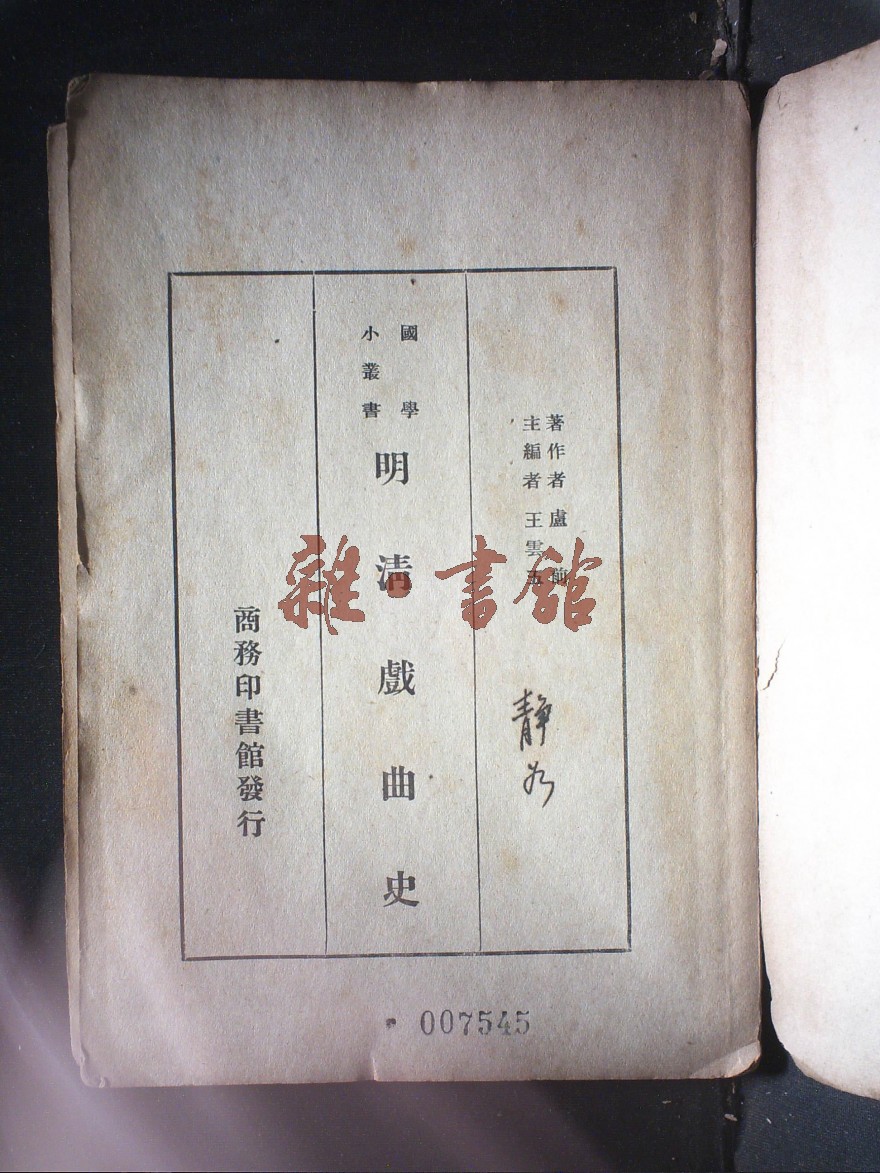 著作者 盧前
主編者 王雲五
國學
小叢書
明清戲曲史
商務印書館發行
静
雜·書館
007545